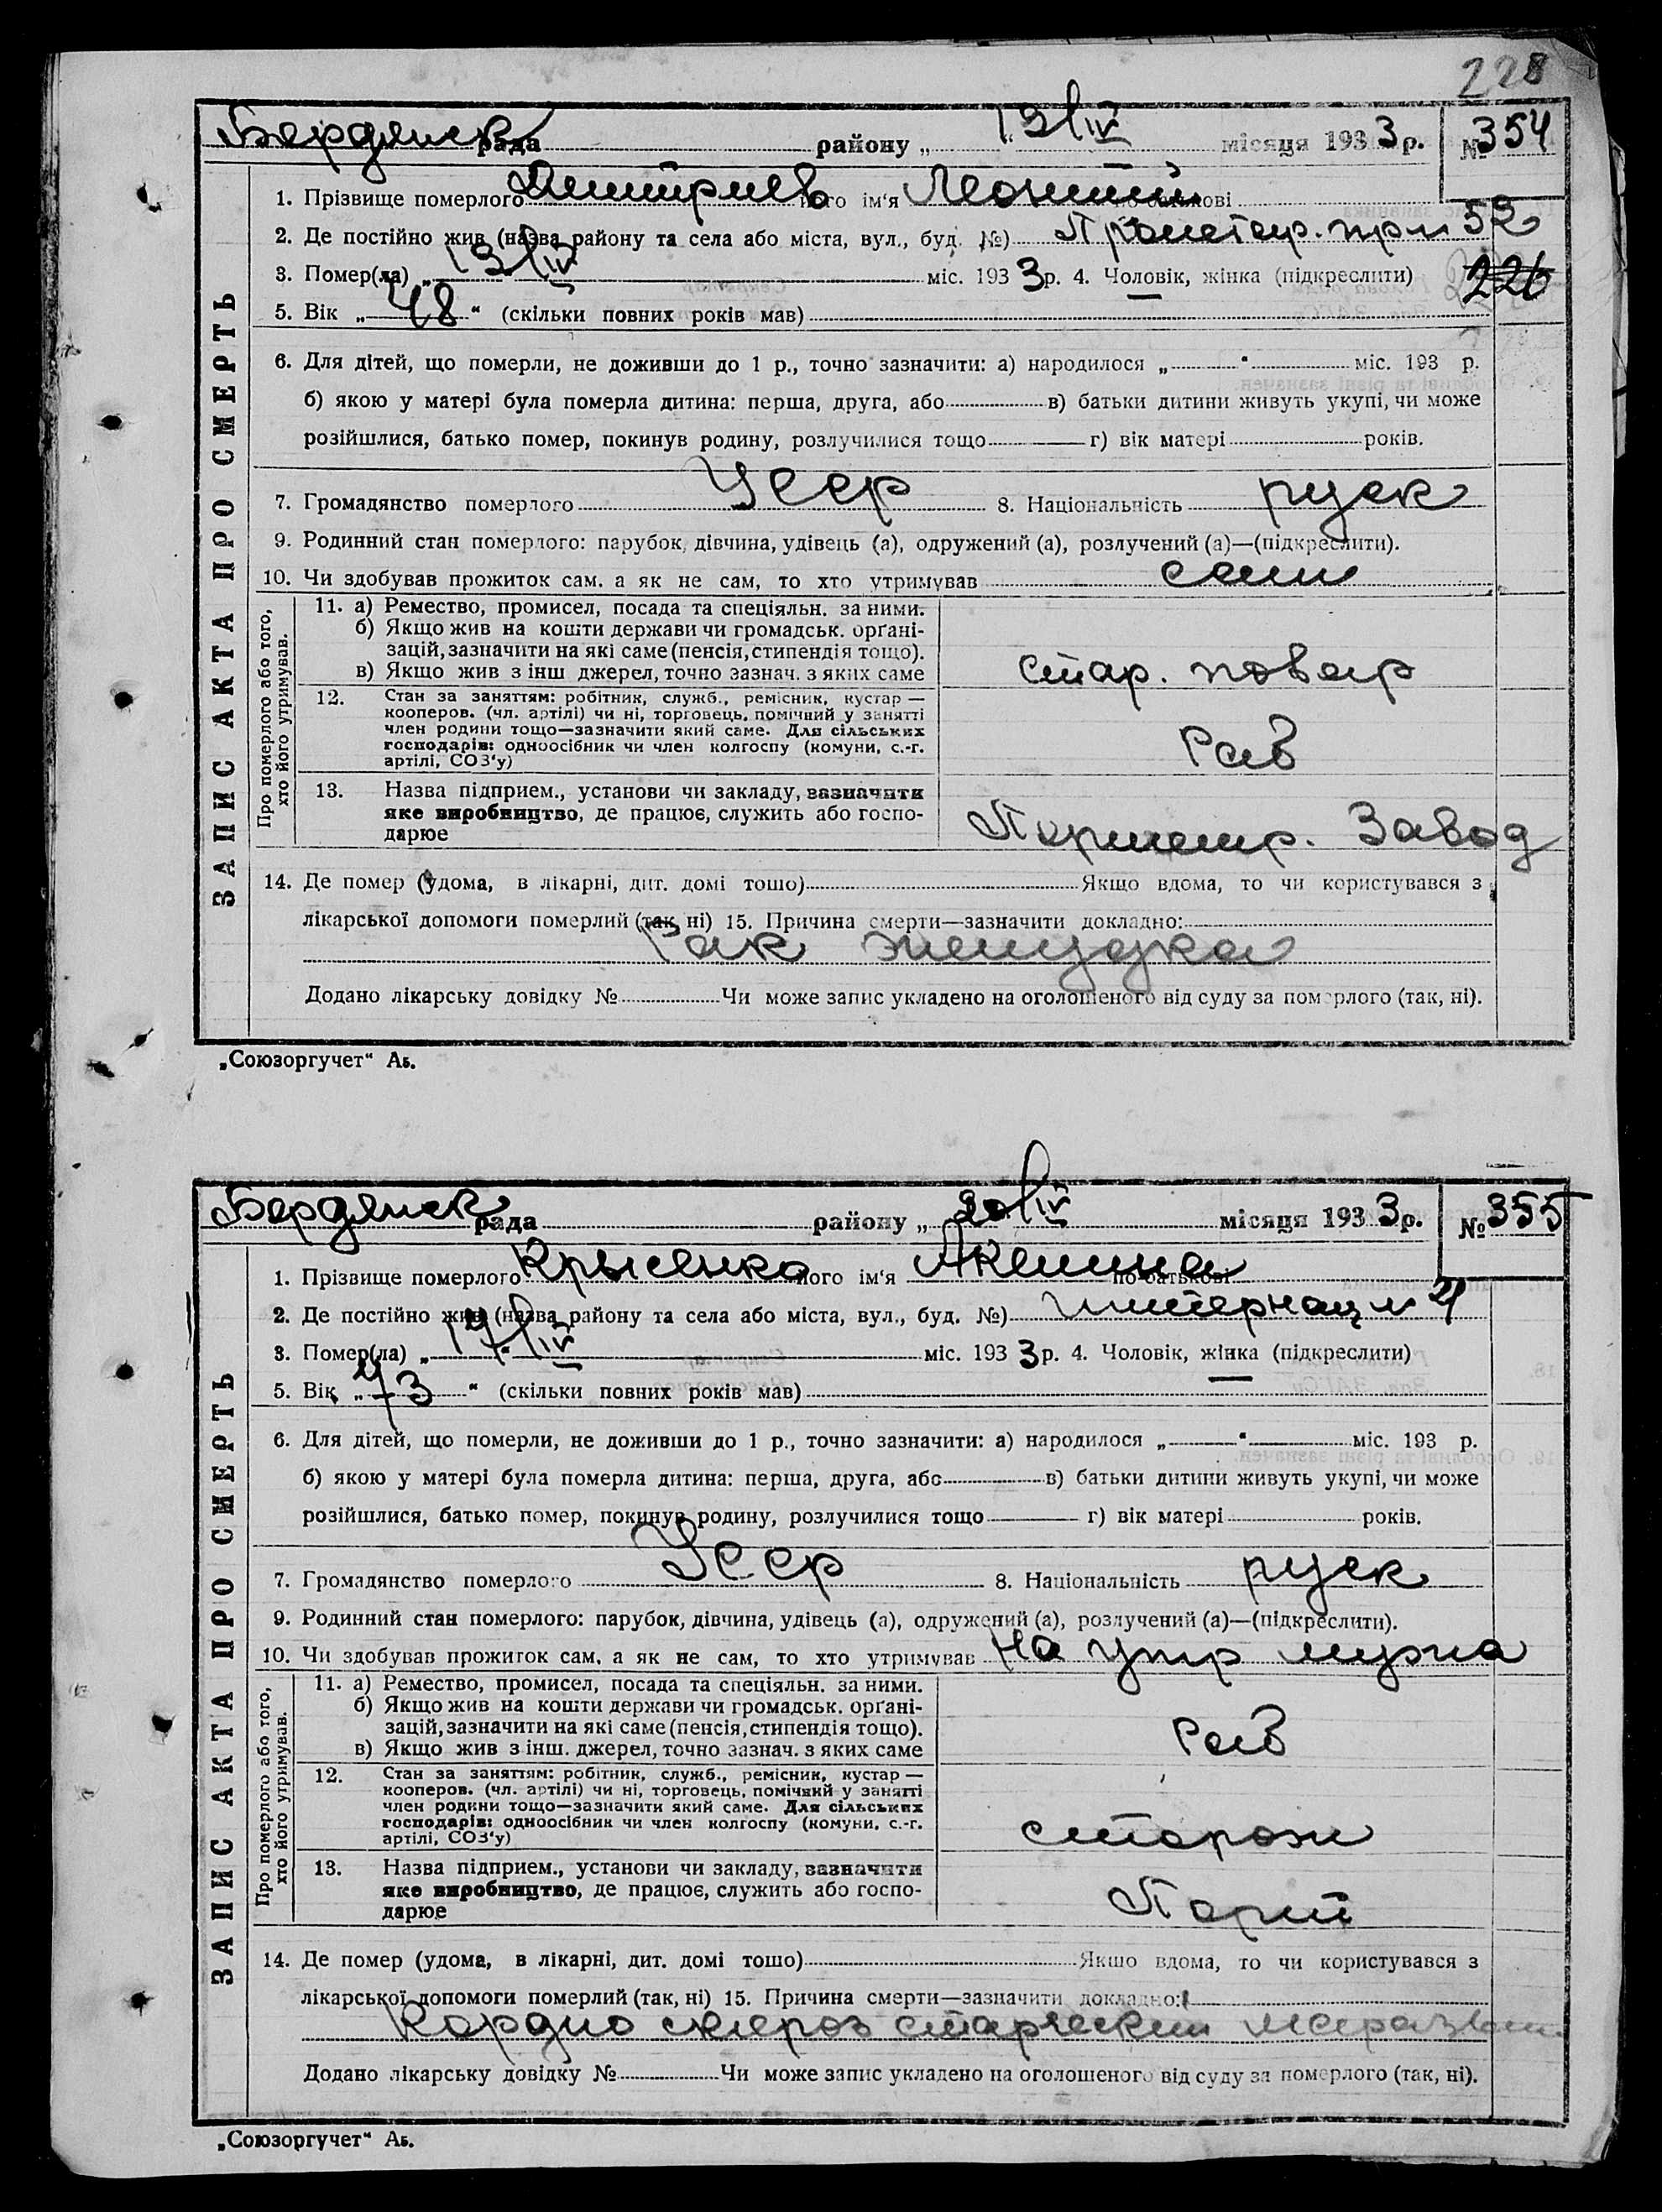 228
Бердянск рада району „ 19/IV “ місяця 1933 р. № 354
1. Прізвище померлого Дмитриев його ім'я Леонтий по-батькові
2. Де постійно жив (назва району та села або міста, вул., буд. №) Пролетар. пр. № 52
3. Помер(ла) „ 19/IV міс. 1933 р. 4. Чоловік, жінка (підкреслити) 226
5. Вік „ 48 “ (скільки повних років мав)
6. Для дітей, що померли, не доживши до 1 р., точно зазначити: а) народилося „ “ міс. 193 р.
б) якою у матері була померла дитина: перша, друга, або в) батьки дитини живуть укупі, чи може
розійшлися, батько помер, покинув родину, розлучилися тощо г) вік матері років.
7. Громадянство померлого Усср 8. Національність руск
9. Родинний стан померлого: парубок, дівчина, удівець (а), одружений (а), розлучений (а)—(підкреслити).
10. Чи здобував прожиток сам, а як не сам, то хто утримував сам
ЗАПИС АКТА ПРО СМЕРТЬ
Про померлого або того, хто його утримував.
11. а) Ремество, промисел, посада та спеціяльн. за ними.
б) Якщо жив на кошти держави чи громадськ. орґані-
зацій, зазначити на які саме (пенсія, стипендія тощо).
в) Якщо жив з інш джерел, точно зазнач. з яких саме
стар. повар
12. Стан за заняттям: робітник, служб., ремісник, кустар —
кооперов. (чл. артілі) чи ні, торговець, помічний у занятті
член родини тощо—зазначити який саме. Для сільських
господарів: одноосібник чи член колгоспу (комуни, с.-г.
артілі, СОЗ'у)
Раб
13. Назва підприем., установи чи закладу, зазначити
яке виробництво, де працює, служить або госпо-
дарює
Завод
14. Де помер (удома, в лікарні, дит. домі тощо) Якщо вдома, то чи користувався з
лікарської допомоги померлий (так, ні) 15. Причина смерти—зазначити докладно:
Рак желудка
Додано лікарську довідку № Чи може запис укладено на оголошеного від суду за померлого (так, ні).
„Союзоргучет“ Аб.
Бердянск рада району „ 20/IV місяця 1933 р. № 355
1. Прізвище померлого Крысенко його ім'я Акелина по-батькові
2. Де постійно жив (назва району та села або міста, вул., буд. №) интернац № 4
3. Помер(ла) „ 19/IV міс. 1933 р. 4. Чоловік, жінка (підкреслити)
5. Вік „ 73 “ (скільки повних років мав)
6. Для дітей, що померли, не доживши до 1 р., точно зазначити: а) народилося „ “ міс. 193 р.
б) якою у матері була померла дитина: перша, друга, або в) батьки дитини живуть укупі, чи може
розійшлися, батько помер, покинув родину, розлучилися тощо г) вік матері років.
7. Громадянство померлого Усср 8. Національність руск
9. Родинний стан померлого: парубок, дівчина, удівець (а), одружений (а), розлучений (а)—(підкреслити).
10. Чи здобував прожиток сам, а як не сам, то хто утримував На ижр мужа
ЗАПИС АКТА ПРО СМЕРТЬ
Про померлого або того, хто його утримував.
11. а) Ремество, промисел, посада та спеціяльн. за ними.
б) Якщо жив на кошти держави чи громадськ. орґані-
зацій, зазначити на які саме (пенсія, стипендія тощо).
в) Якщо жив з інш. джерел, точно зазнач. з яких саме
Раб
12. Стан за заняттям: робітник, служб., ремісник, кустар —
кооперов. (чл. артілі) чи ні, торговець, помічний у занятті
член родини тощо—зазначити який саме. Для сільських
господарів: одноосібник чи член колгоспу (комуни, с.-г.
артілі, СОЗ'у)
сторож
13. Назва підприем., установи чи закладу, зазначити
яке виробництво, де працює, служить або госпо-
дарює
Порт
14. Де помер (удома, в лікарні, дит. домі тощо) Якщо вдома, то чи користувався з
лікарської допомоги померлий (так, ні) 15. Причина смерти—зазначити докладно:
Кардио склероз старческий маразм
Додано лікарську довідку № Чи може запис укладено на оголошеного від суду за померлого (так, ні).
„Союзоргучет“ Аб.